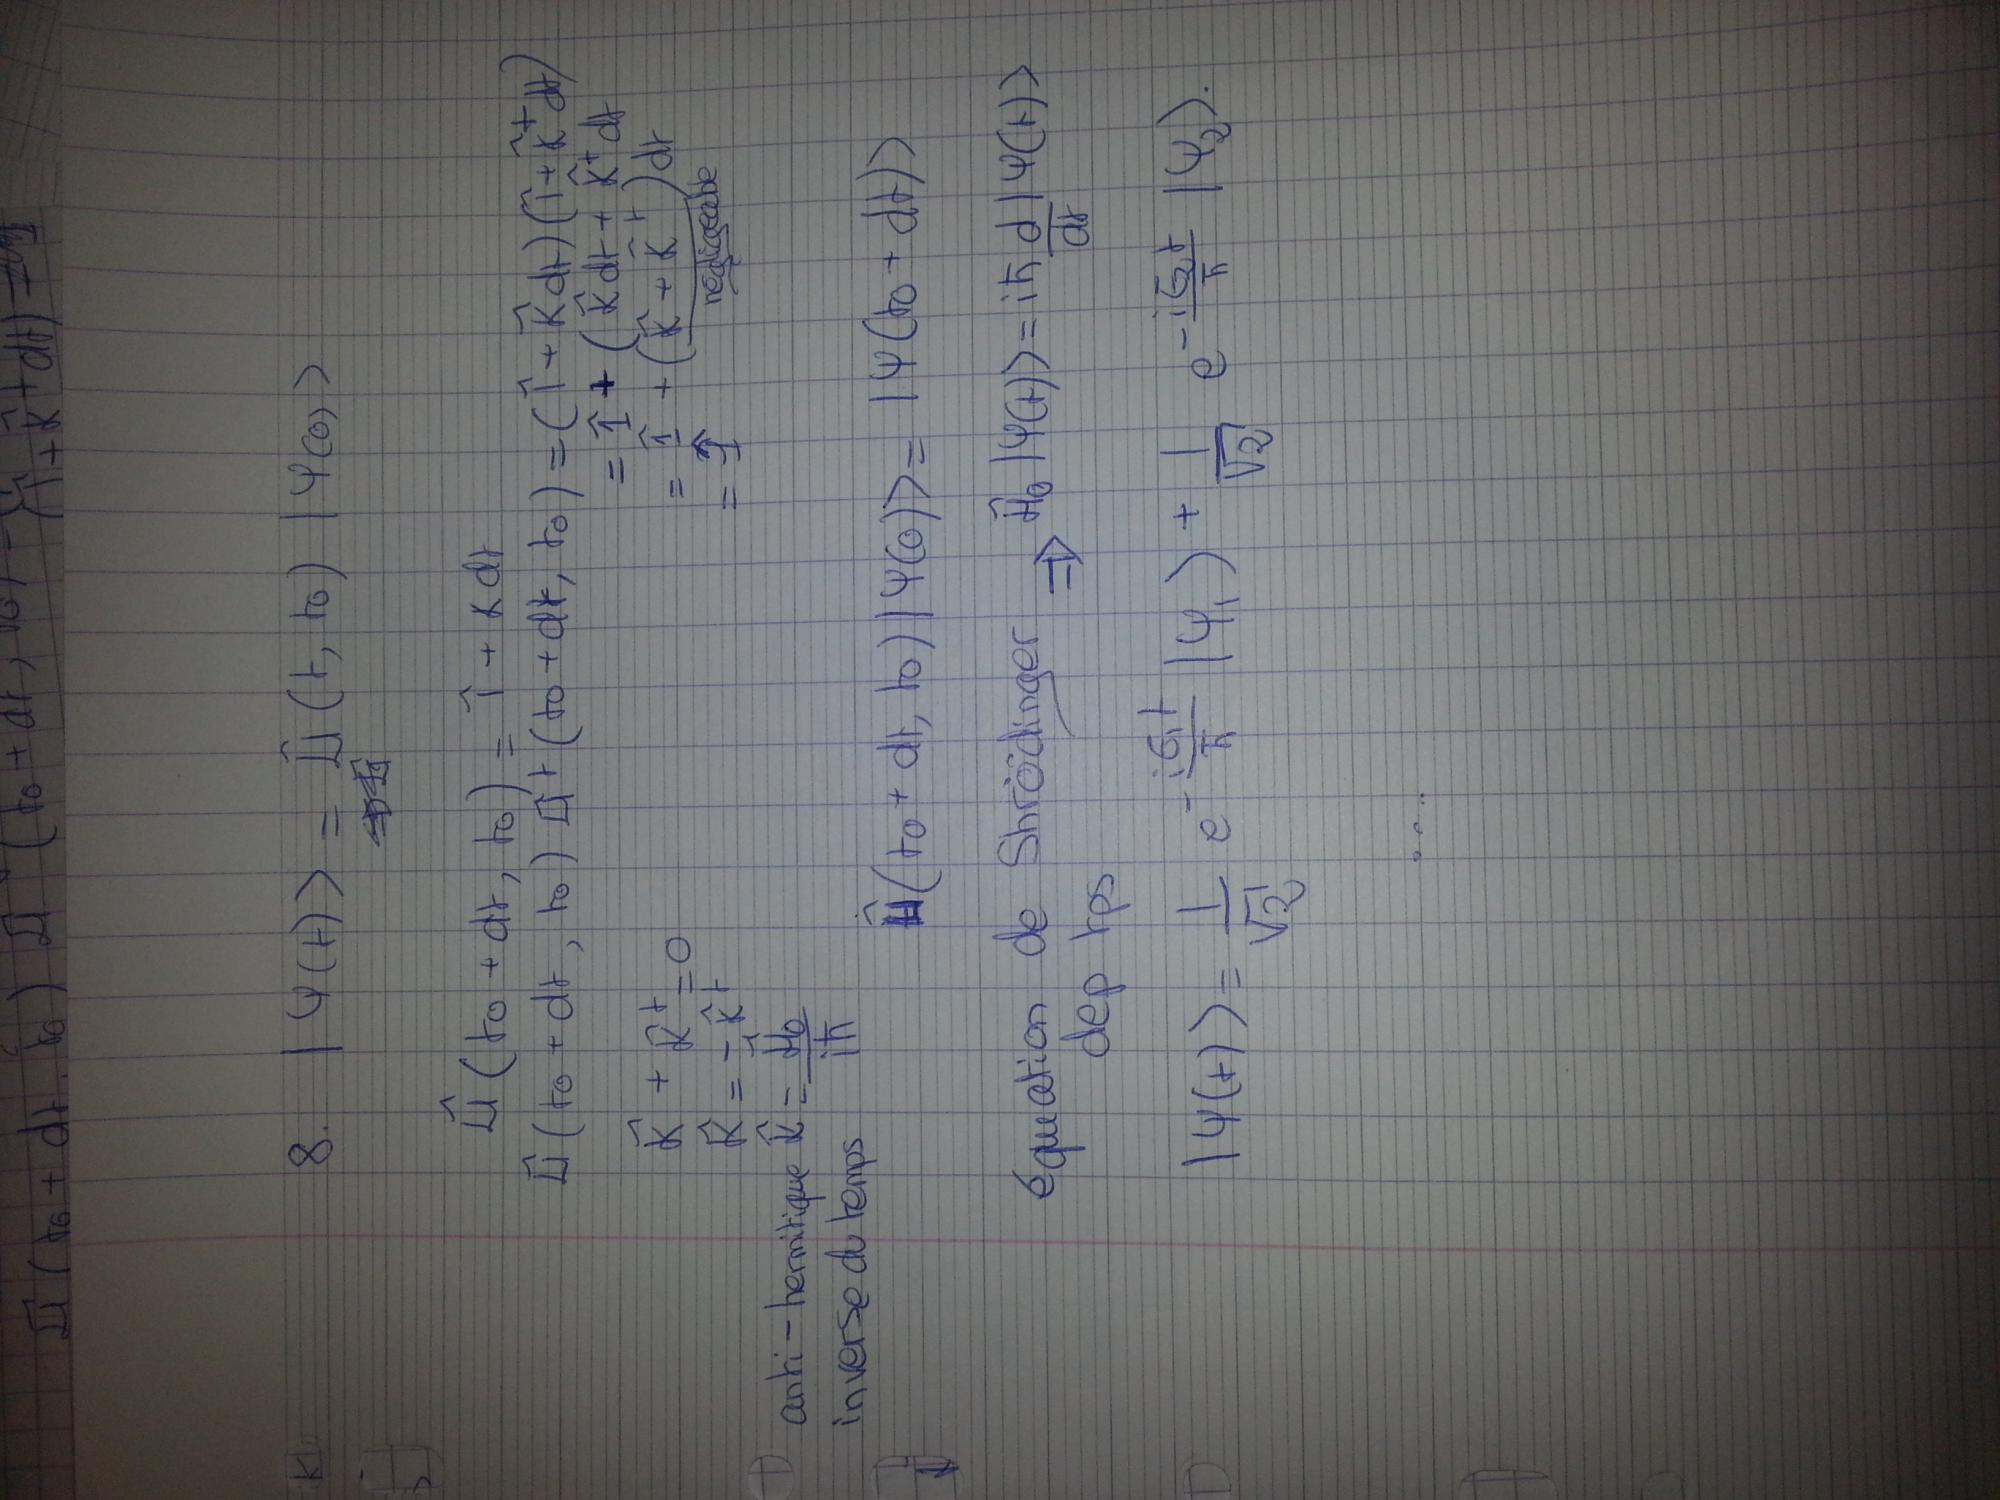 Û(t0 + dt, t0) Û⁺(t0 + dt, t0) = 1̂ + K̂⁺dt)
8. |ψ(t)> = Û(t, t0) |ψ(0)>
Û(t0 + dt, t0) = 1̂ + K dt
Û(t0 + dt, t0) Û⁺(t0 + dt, t0) = (1̂ + K̂dt)(1̂ + K̂⁺dt)
= 1̂ + (K̂dt + K̂⁺dt
= 1̂ + (K̂ + K̂⁺)dt
négligeable
= 1̂
K̂ + K̂⁺ = 0
K̂ = -K̂⁺
anti-hermitique K̂ = Ĥ0/iħ
inverse du temps
Ĥ(t0 + dt, t0)|ψ(0)> = |ψ(t0 + dt)>
équation de Shrödinger ⇒ Ĥ0 |ψ(t)> = iħ d/dt |ψ(t)>
dep tps
|ψ(t)> = 1/√2 e^(-iE1t/ħ) |ψ1> + 1/√2 e^(-iE2t/ħ) |ψ2>.
....